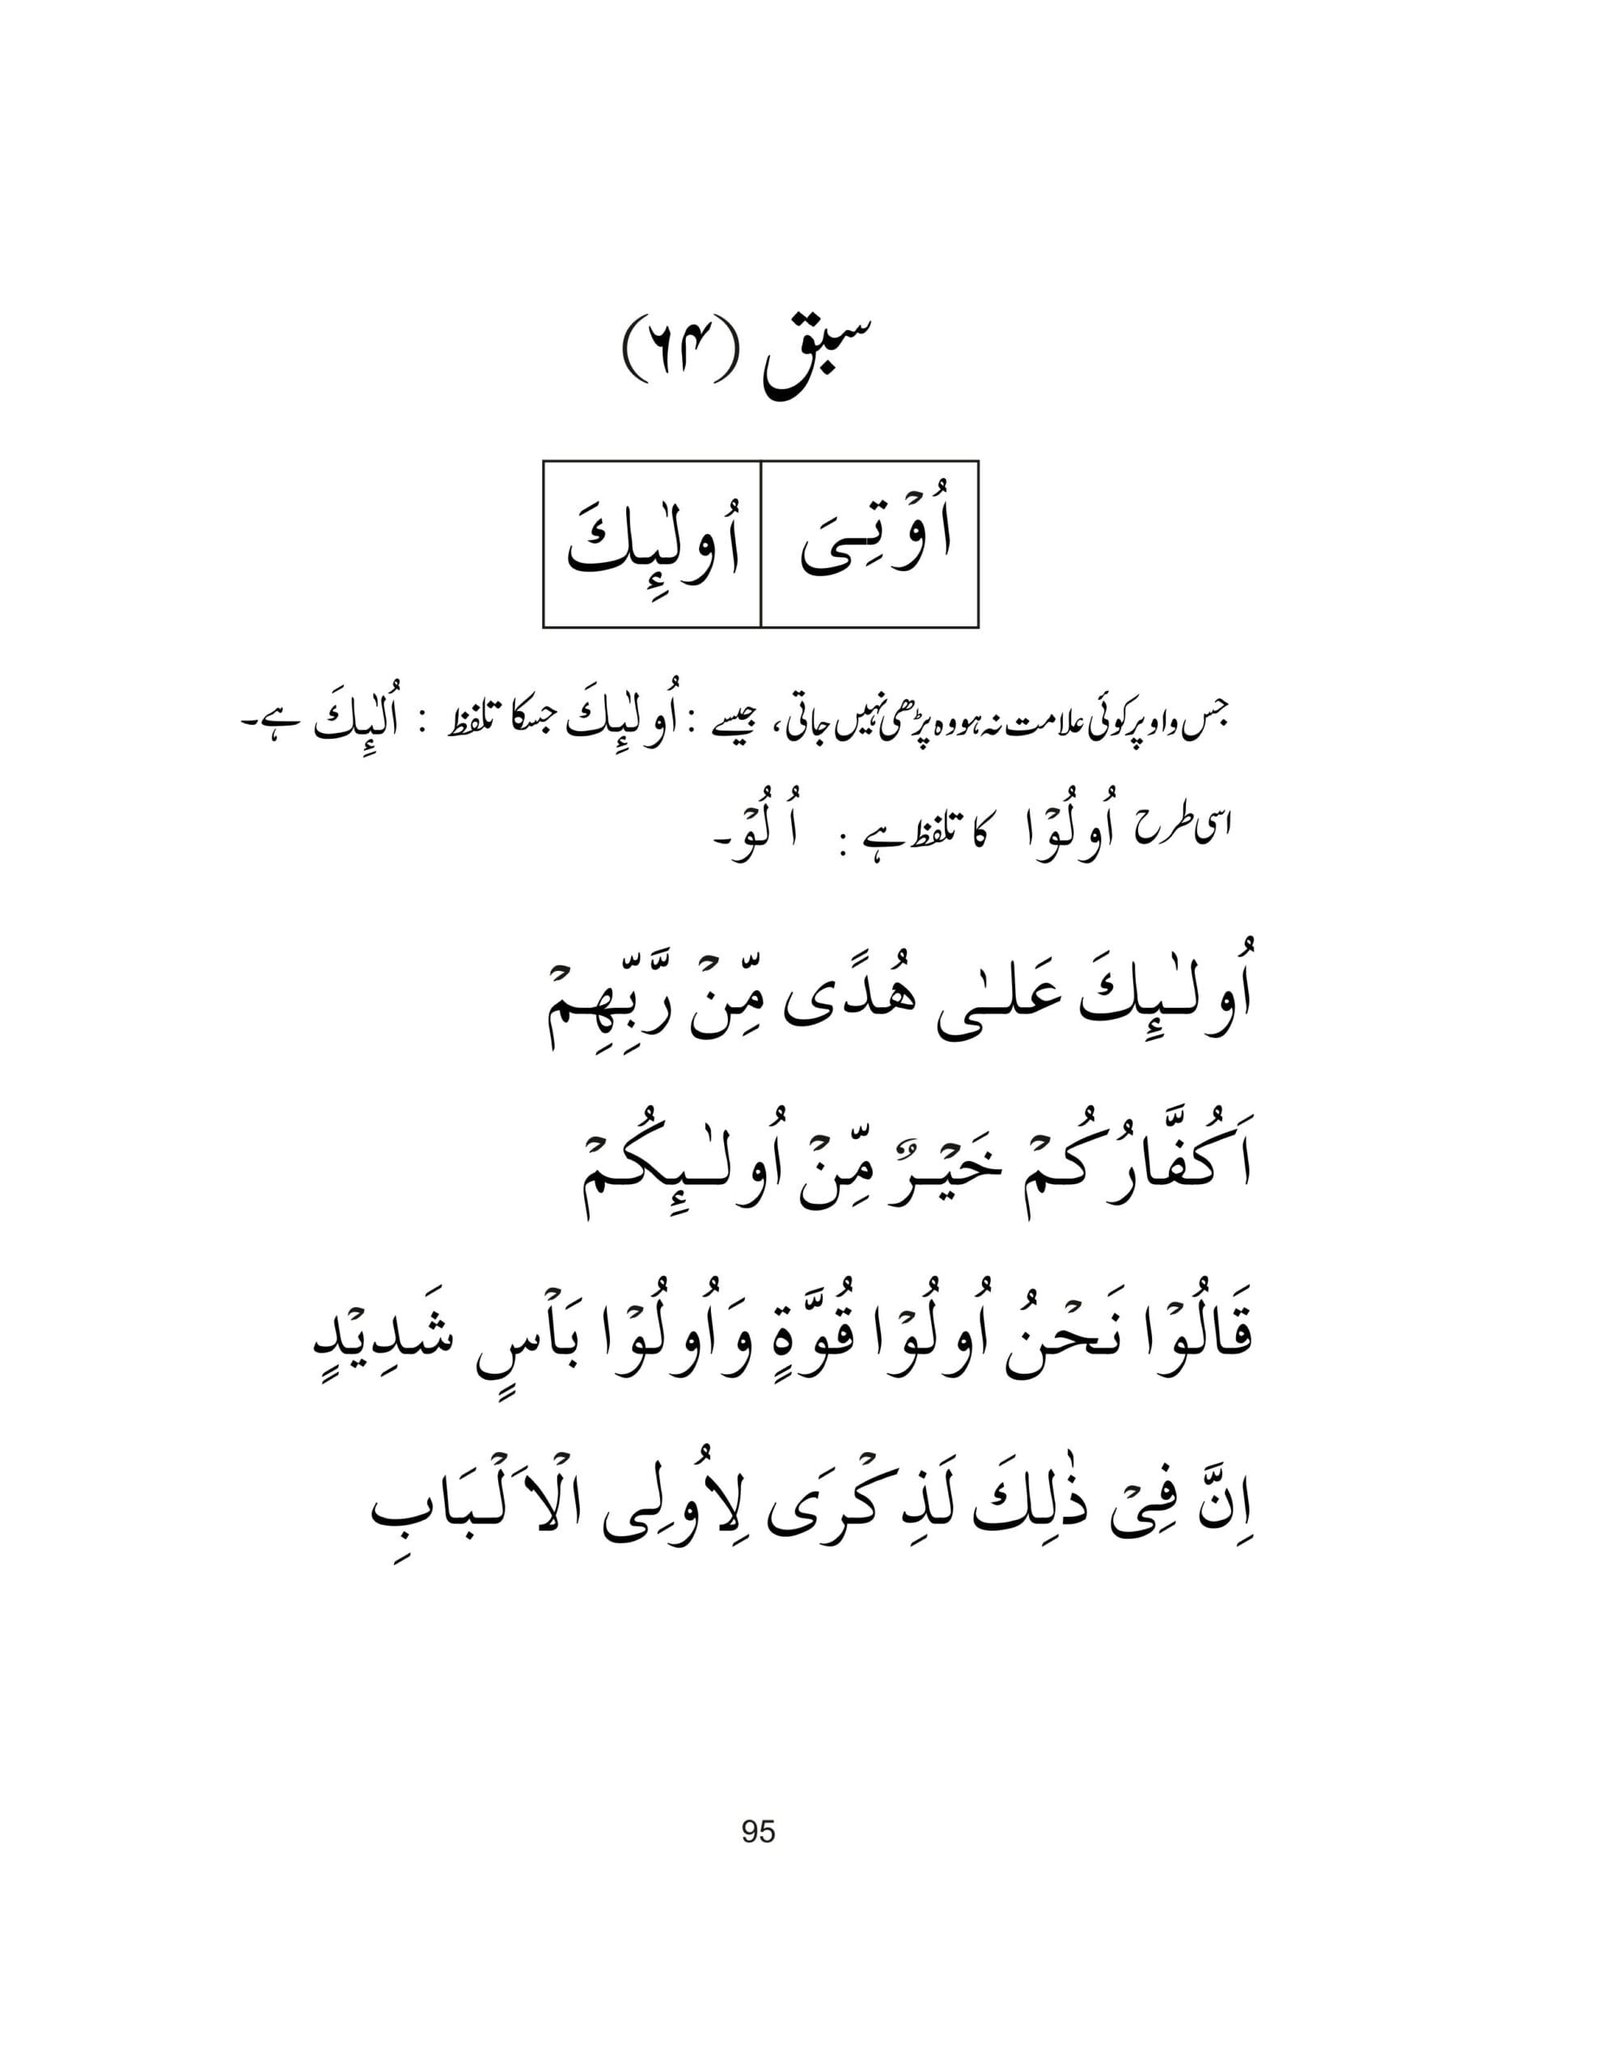 سبق (۶۴)
اُوۡتِیَ اُولٰٓئِكَ
جس واو پر کوئی علامت نہ ہو وہ پڑھی نہیں جاتی، جیسے : اُولٰٓئِكَ جسکا تلفظ : اُلٰٓئِكَ ہے۔
اسی طرح اُولُوۡا کا تلفظ ہے : اُ لُوۡ۔
اُولٰٓئِكَ عَلـٰى هُدًى مِّنۡ رَّبِّهِمۡ
اَكُفَّارُكُمۡ خَيۡرٌ مِّنۡ اُولٰٓئِكُمۡ
قَالُوۡا نَحۡنُ اُولُوۡا قُوَّةٍ وَاُولُوۡا بَاۡسٍ شَدِيۡدٍ
اِنَّ فِىۡ ذٰلِكَ لَذِكۡرَى لِاُولِى الۡاَلۡبَابِ
95